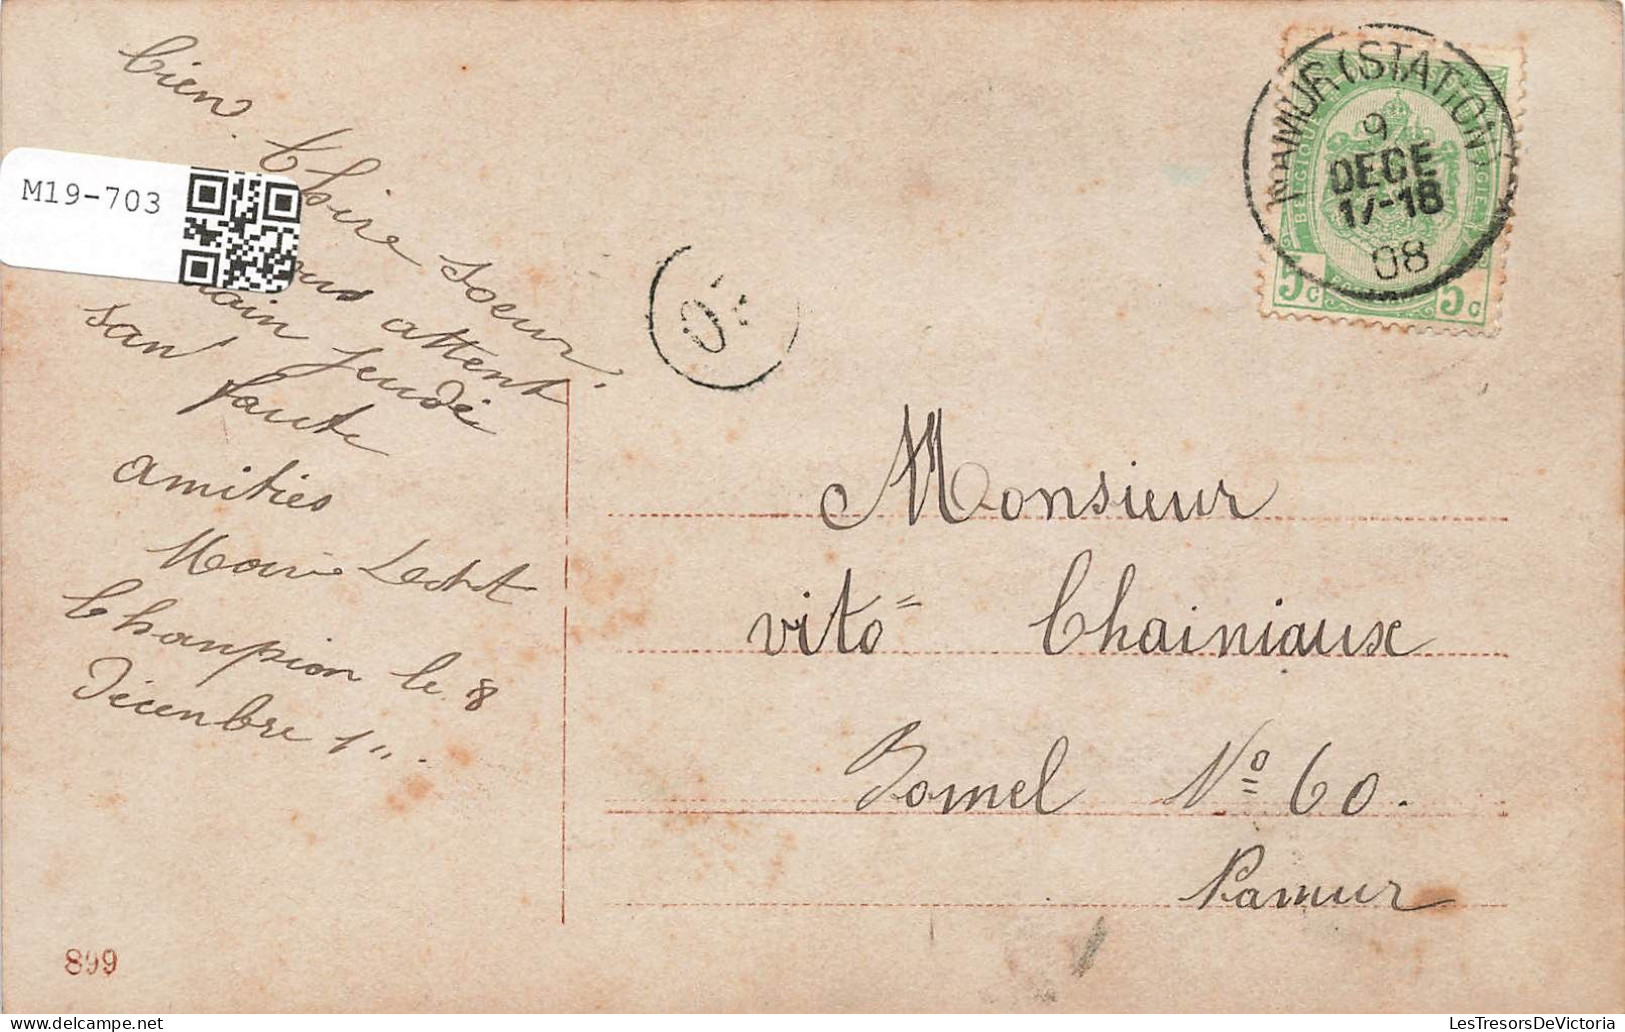 bien Chère soeur.
attent
Jeudi
san faute
amitiés
Marie
Chanpion le 8
Décenbre 1"".
M19-703
NAMUR (STATION)
9
DECE
17-18
08
BELGIQUE
5c 5c
Monsieur
vito" Chainiaux
Bomel Nº 60.
Namur
899
LesTresorsDeVictoria